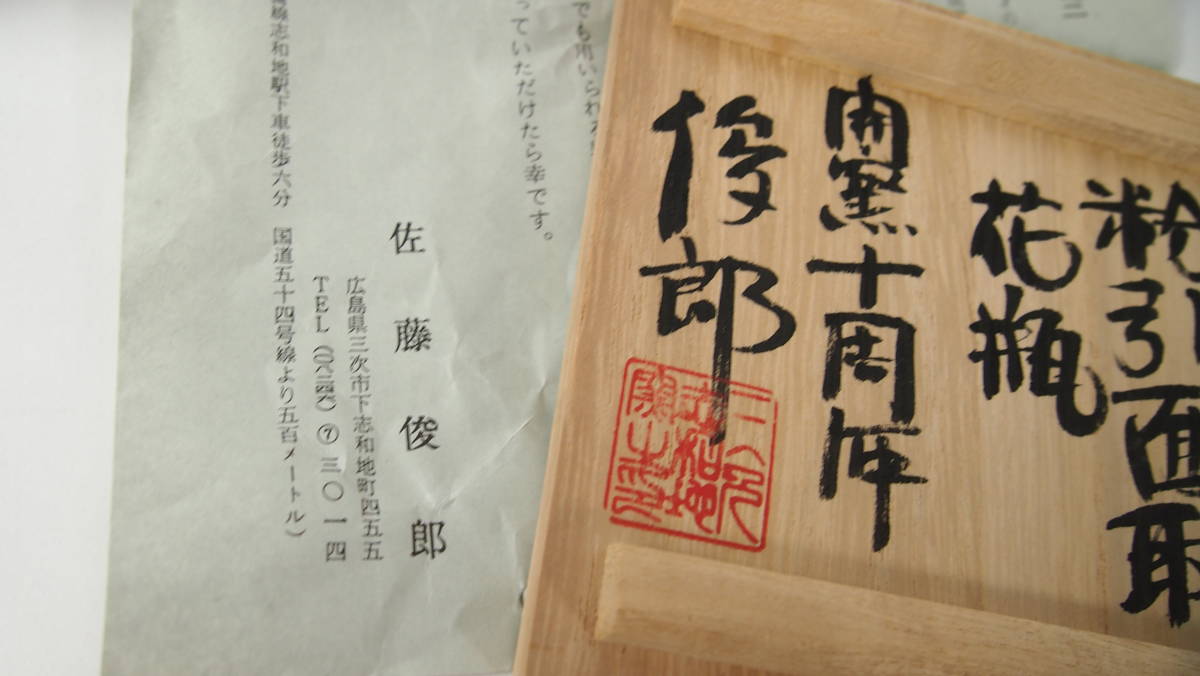 粉引面取
花瓶
開窯十周年
俊郎
三次
志和地
でも用いられ
っていただけたら幸です。
佐藤俊郎
広島県三次市下志和地町四五五
TEL(〇八二四六)⑦三〇一四
線志和地駅下車徒歩六分 国道五十四号線より五百メートル)